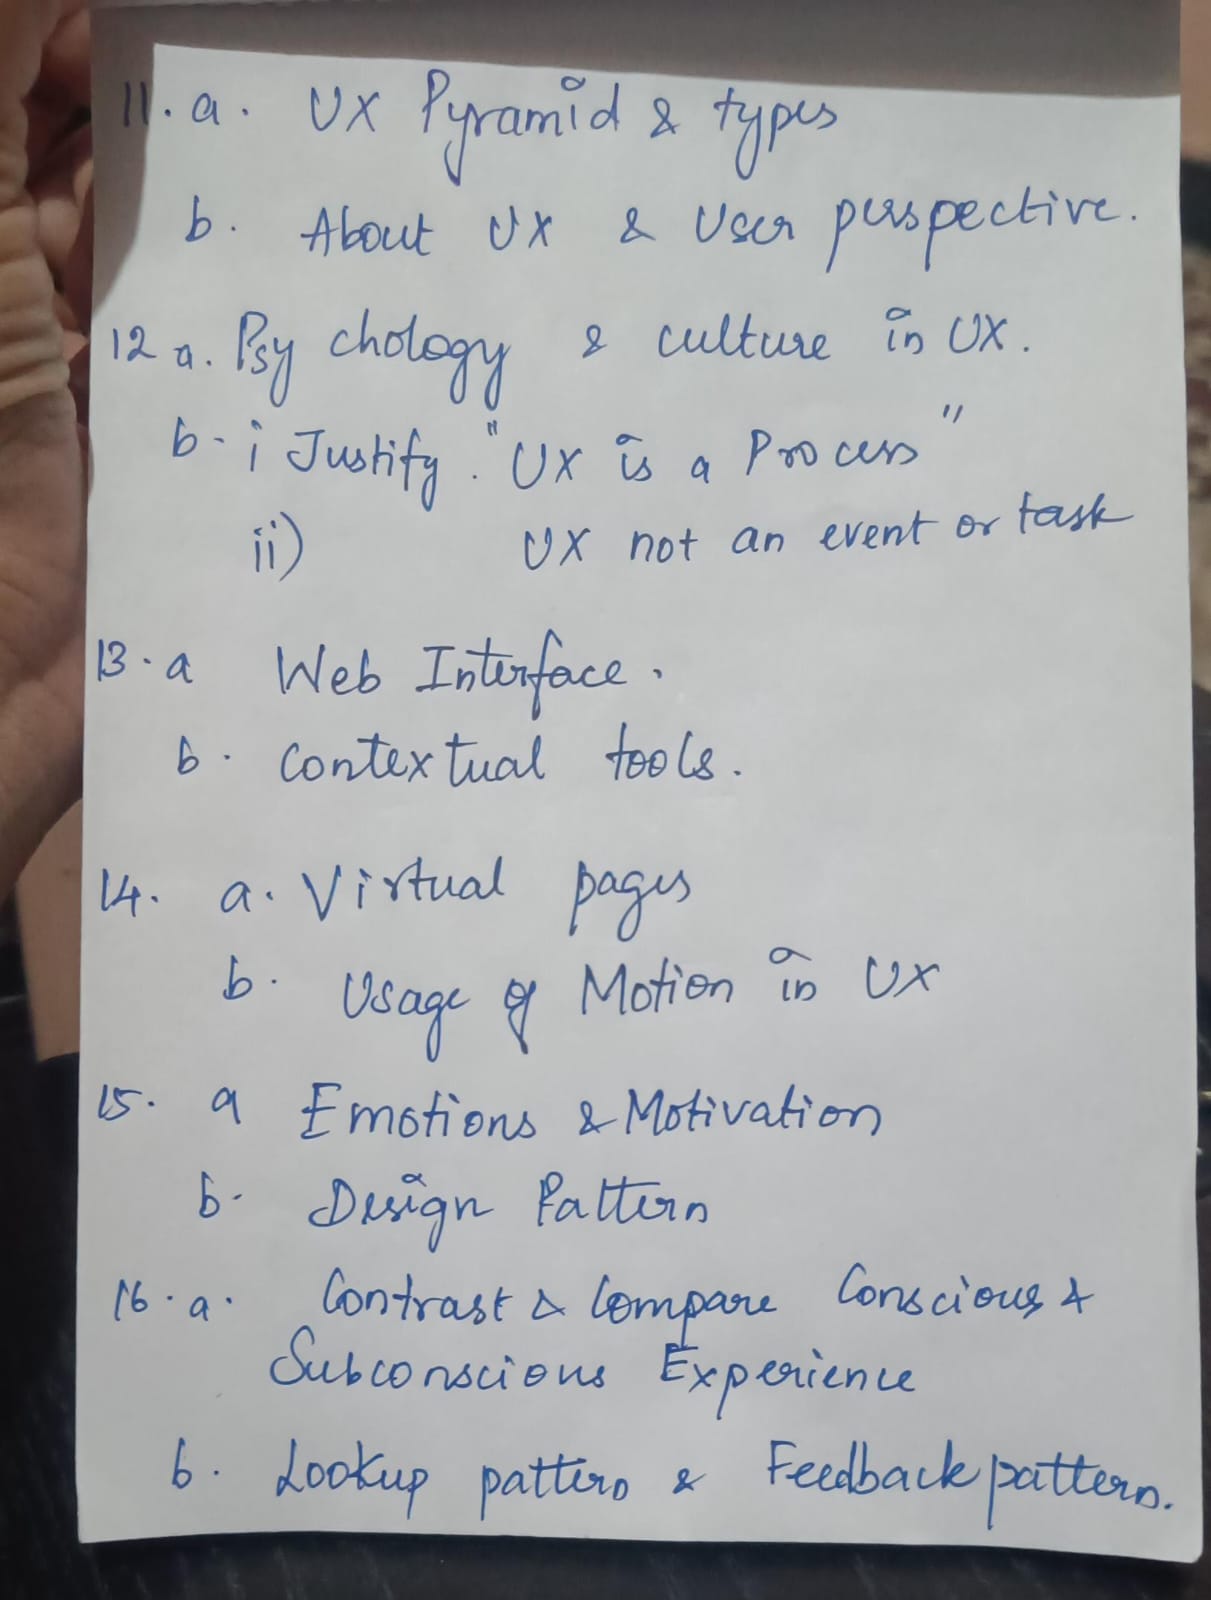 11. a. UX Pyramid & types
b. About UX & User perspective.
12 a. Psychology & culture in UX.
b. i Justify. "UX is a Process"
ii) UX not an event or task
13. a Web Interface.
b. Contextual tools.
14. a. Virtual pages
b. Usage of Motion in UX
15. a Emotions & Motivation
b. Design Pattern
16. a. Contrast & Compare Conscious &
Subconscious Experience
b. Lookup pattern & Feedback pattern.